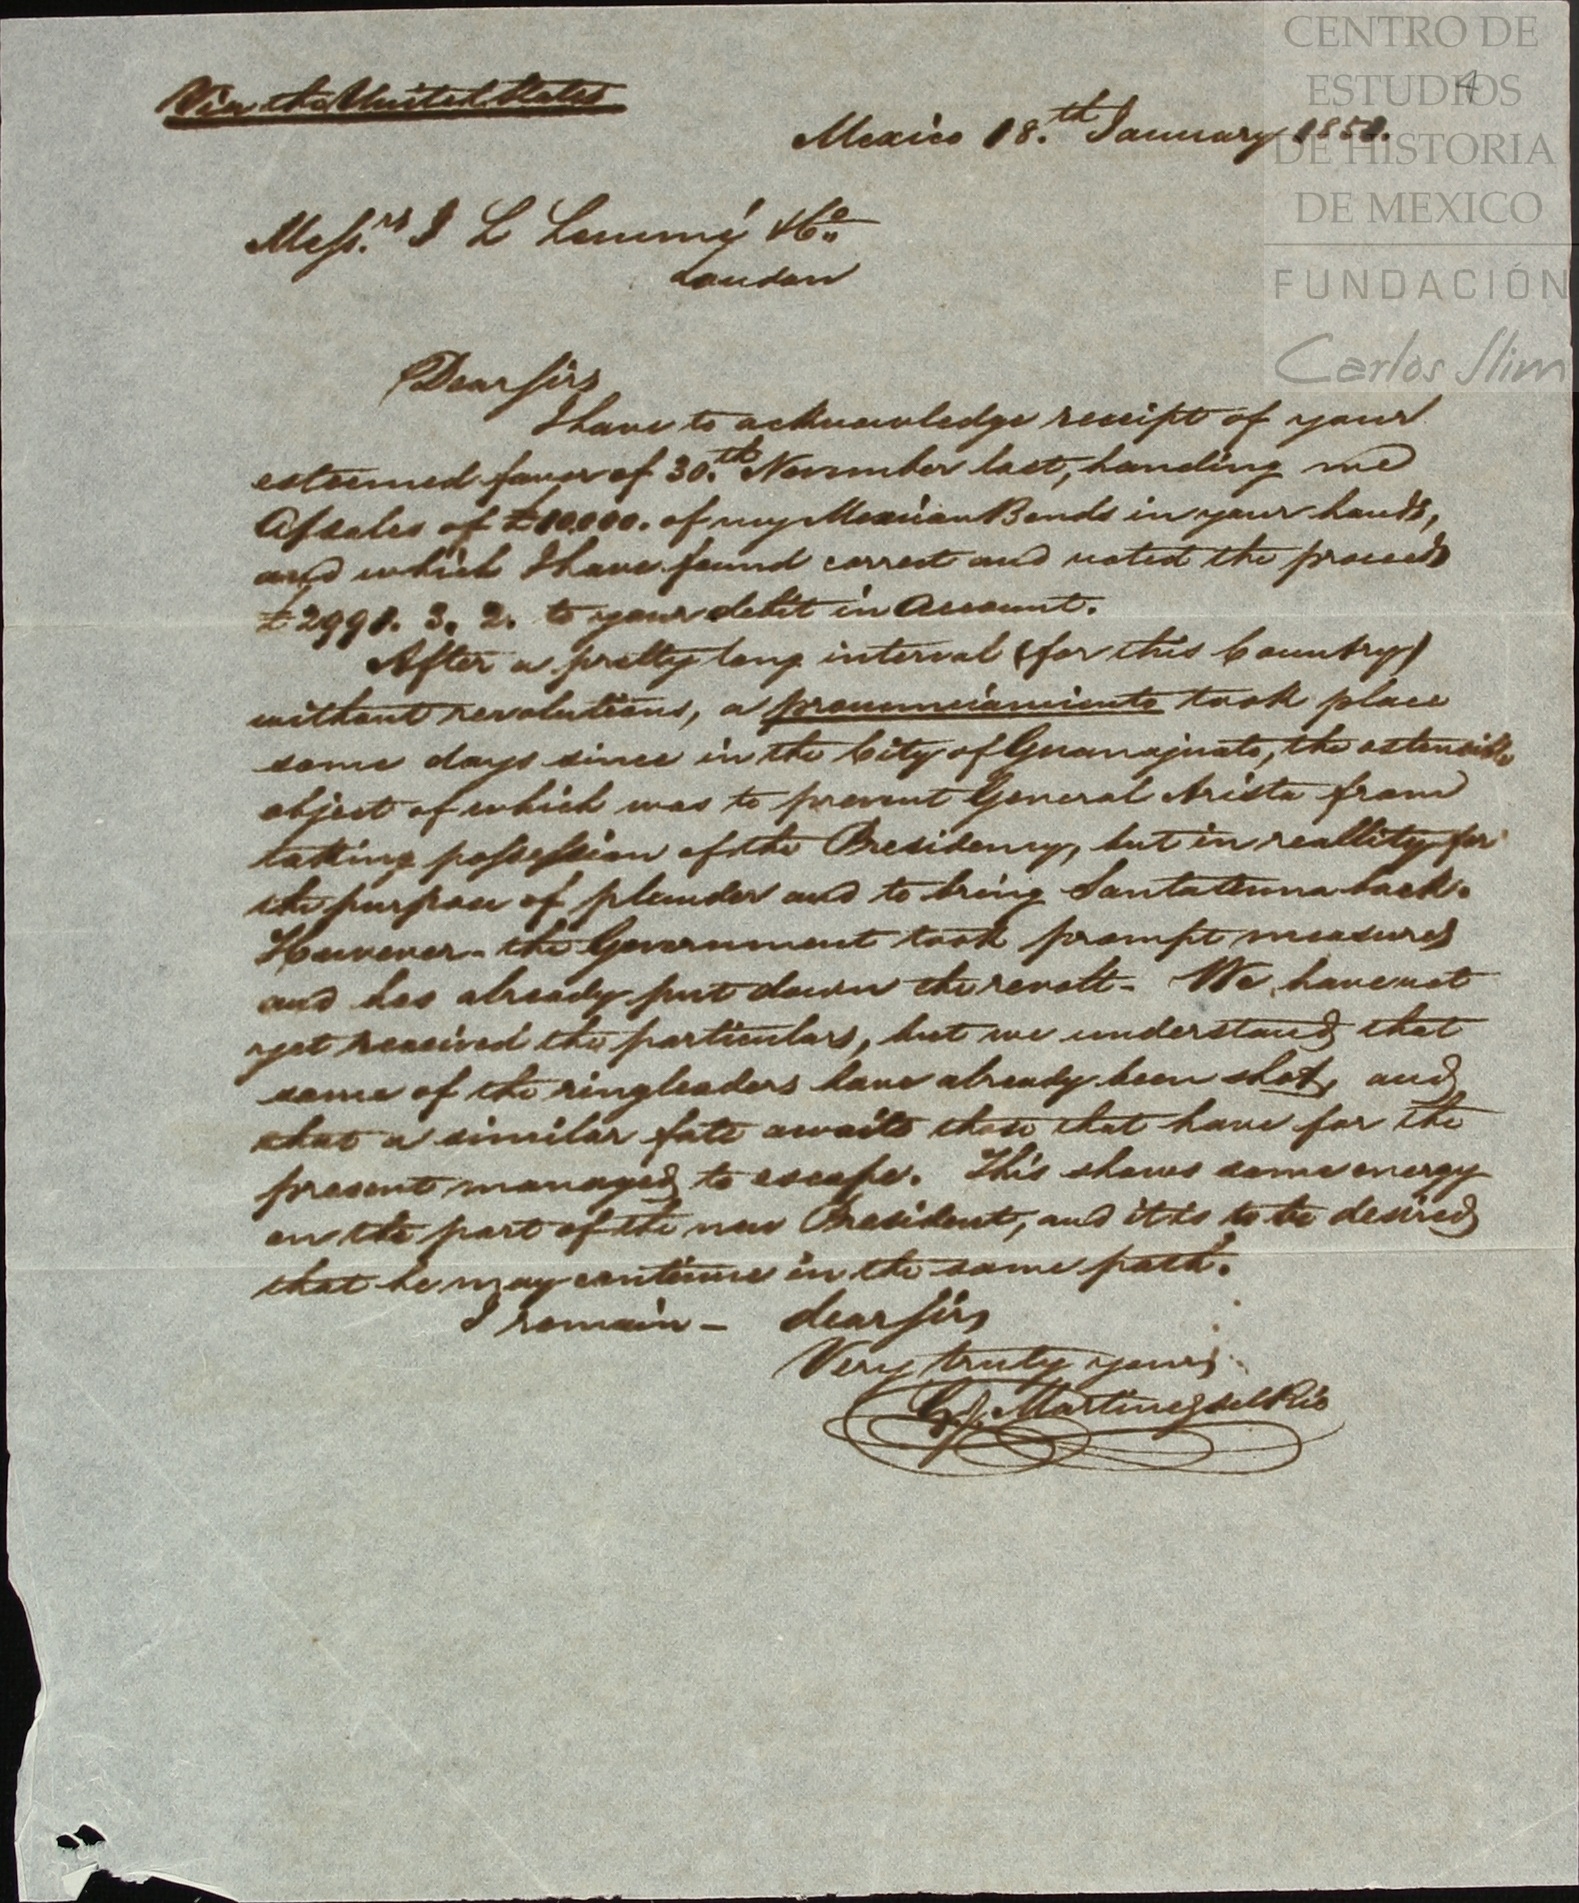 CENTRO DE
ESTUDIOS
DE HISTORIA
DE MEXICO
FUNDACIÓN
Carlos Slim
4
Via the United States
Mexico 18.th January 1851.
Mess.rs J L Lemmé & Co.
London
Dear Sirs
I have to acknowledge receipt of your
esteemed favor of 30.th November last, handing me
A/sales of £10,000. of my Mexican Bonds in your hands,
and which I have found correct and noted the proceeds
£2991. 3. 2. to your debit in Account.
After a pretty long interval (for this Country)
without revolutions, a pronunciamiento took place
some days since in the City of Guanajuato, the ostensible
object of which was to prevent General Arista from
taking possession of the Presidency, but in reallity for
the purpose of plunder and to bring Santa Anna back.
However - the Government took prompt measures
and has already put down the revolt - We have not
yet received the particulars, but we understand that
some of the ringleaders have already been shot, and
that a similar fate awaits those that have for the
present managed to escape. This shows some energy
on the part of the new President, and it is to be desired
that he may continue in the same path.
I remain - dear Sirs
Very truly yours
Martinez del Rio